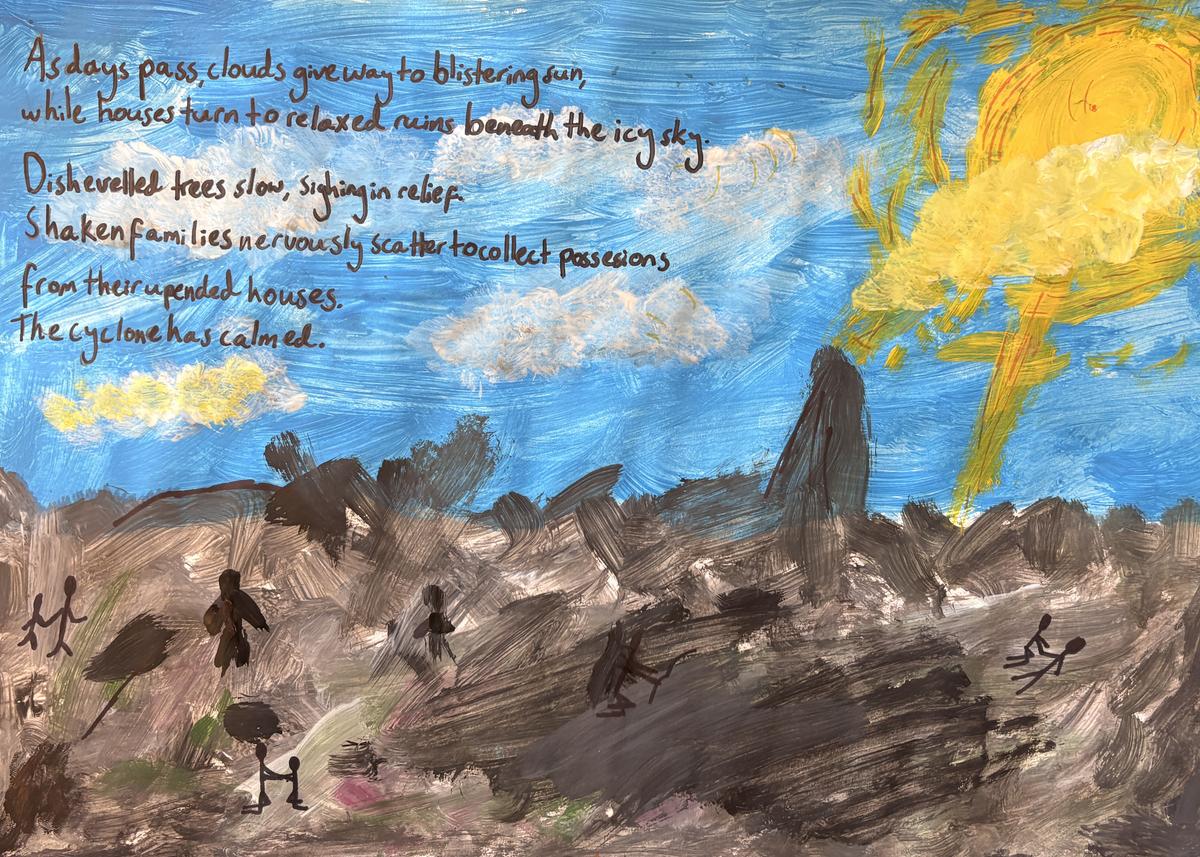 As days pass, clouds give way to blistering sun,
while houses turn to relaxed ruins beneath the icy sky.
Dishevelled trees slow, sighing in relief.
Shaken families nervously scatter to collect possesions
from their upended houses.
The cyclone has calmed.